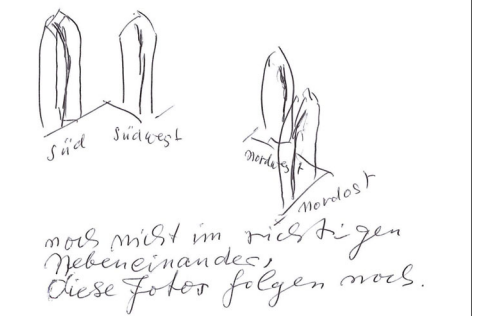 Süd
Südwest
Nordwest
Nordost
noch nicht im richtigen
Nebeneinander,
diese Fotos folgen noch.